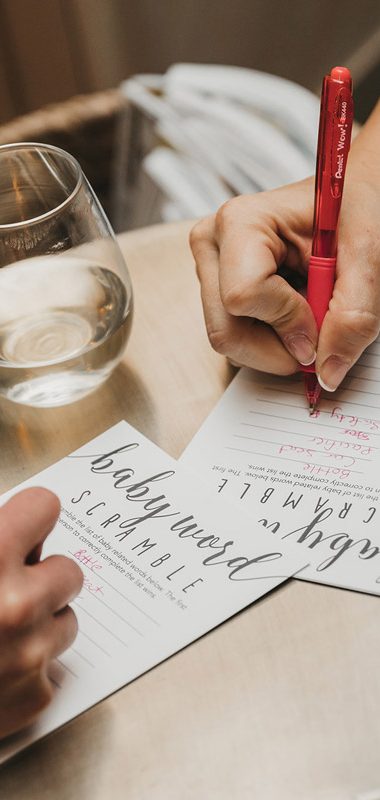 Pentel Wow! BK440
baby word
SCRAMBLE
the list of baby related words below. The first
person to correctly complete the list wins.
baby w
SCRAMBLE
the list of baby related words below. The first
to correctly complete the list wins.
Bottle
Car Seat
Pacifier